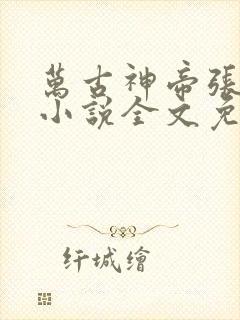 萬古神帝張
小說全文免
纤城繪